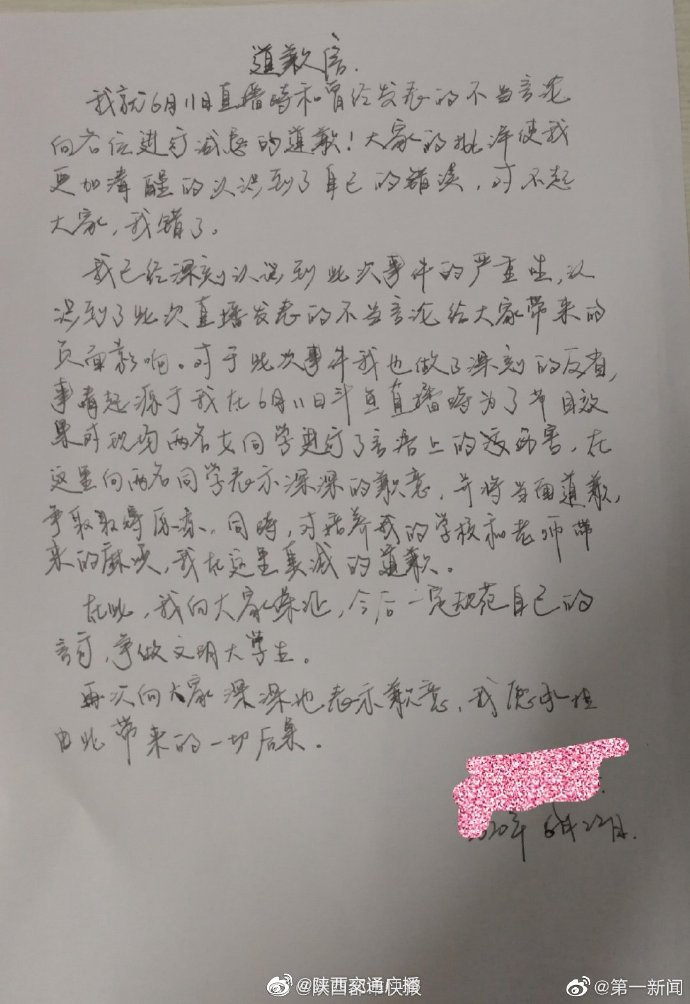 道歉信.
我就6月11日直播时和曾经发表的不当言论
向各位进行诚恳的道歉！大家的批评使我
更加清醒的认识到了自己的错误，对不起
大家，我错了。
我已经深刻认识到此次事件的严重性，认
识到了此次直播发表的不当言论给大家带来的
负面影响。对于此次事件我也做了深刻的反省，
事情起源于我在6月11日斗鱼直播时为了节目效
果对现场两名女同学进行了言语上的伤害，在
这里向两名同学表示深深的歉意，并将当面道歉，
争取取得原谅，同时，对培养我的学校和老师带
来的麻烦，我在这里真诚的道歉。
在此，我向大家保证，今后一定规范自己的
言行，争做文明大学生。
再次向大家深深地表示歉意，我愿承担
由此带来的一切后果。
2020年6月22日.
@陕西交通广播
@第一新闻